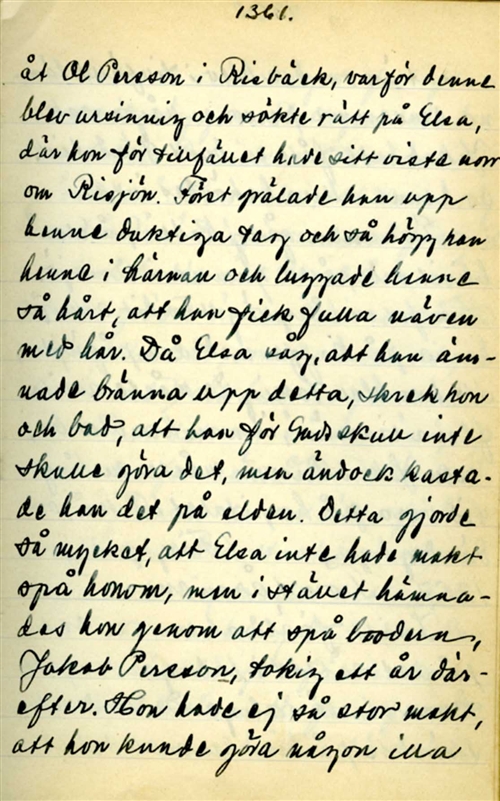 1361.
åt Ol Persson i Risbäck, varför denne
blev ursinnig och sökte rätt på Elsa,
där hon för tillfället hade sitt viste norr
om Risjön. Först grälade han upp
henne duktiga tag och så högg han
henne i hårman och luggade henne
så hårt, att han fick fulla näven
med hår. Då Elsa såg, att han äm-
nade bränna upp detta, skrek hon
och bad, att han för Guds skull inte
skulle göra det, men ändock kasta-
de han det på elden. Detta gjorde
så mycket, att Elsa inte hade makt
spå honom, men i stället hämna-
des hon genom att spå brodern,
Jakob Persson, tokig ett år där-
efter. Hon hade ej så stor makt,
att hon kunde göra någon illa